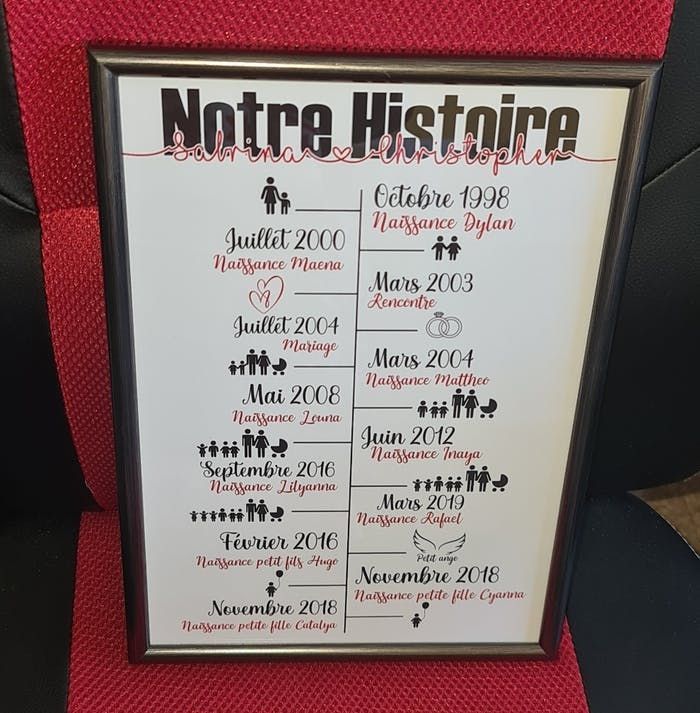 Notre Histoire
Sabrina Christopher
Octobre 1998
Naissance Dylan
Juillet 2000
Naissance Maena
Mars 2003
Rencontre
Juillet 2004
Mariage
Mars 2004
Naissance Mattheo
Mai 2008
Naissance Louna
Juin 2012
Naissance Inaya
Septembre 2016
Naissance Lilyanna
Mars 2019
Naissance Rafael
Février 2016
Naissance petit fils Hugo
Petit ange
Novembre 2018
Naissance petite fille Cyanna
Novembre 2018
Naissance petite fille Catalya